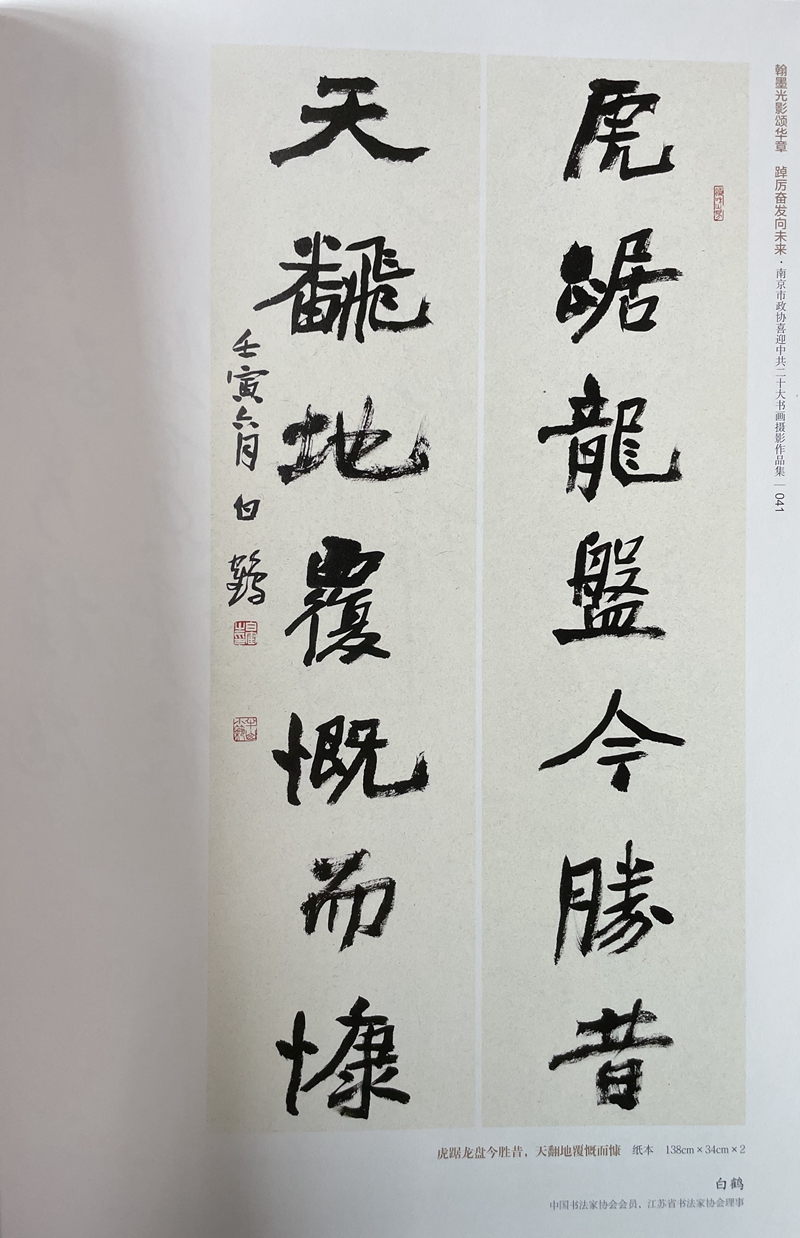 虎踞龍盤今勝昔
天飜地覆慨而慷
壬寅六月 白鶴
翰墨光影颂华章 踔厉奋发向未来·南京市政协喜迎中共二十大书画摄影作品集 | 041
虎踞龙盘今胜昔，天翻地覆慨而慷 纸本 138cm×34cm×2
白鹤
中国书法家协会会员、江苏省书法家协会理事